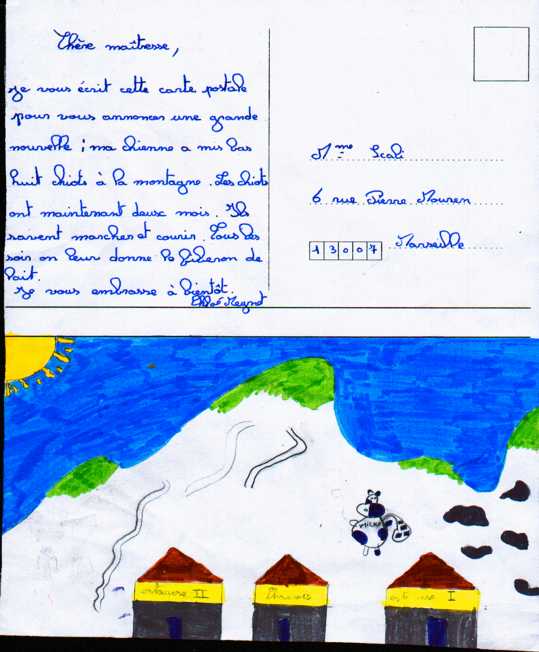 Chère maîtresse,
Je vous écrit cette carte postale
pour vous annoncer une grande
nouvelle ; ma chienne a mis bas
huit chiots à la montagne. Les chiots
ont maintenant deux mois. Ils
savent marcher et courir. Tous les
soir on leur donne le biberon de
lait.
Je vous embrasse à bientôt.
Chloé
Mme Scali
6 rue Pierre Mouren
13007 Marseille
MILKA
II
I